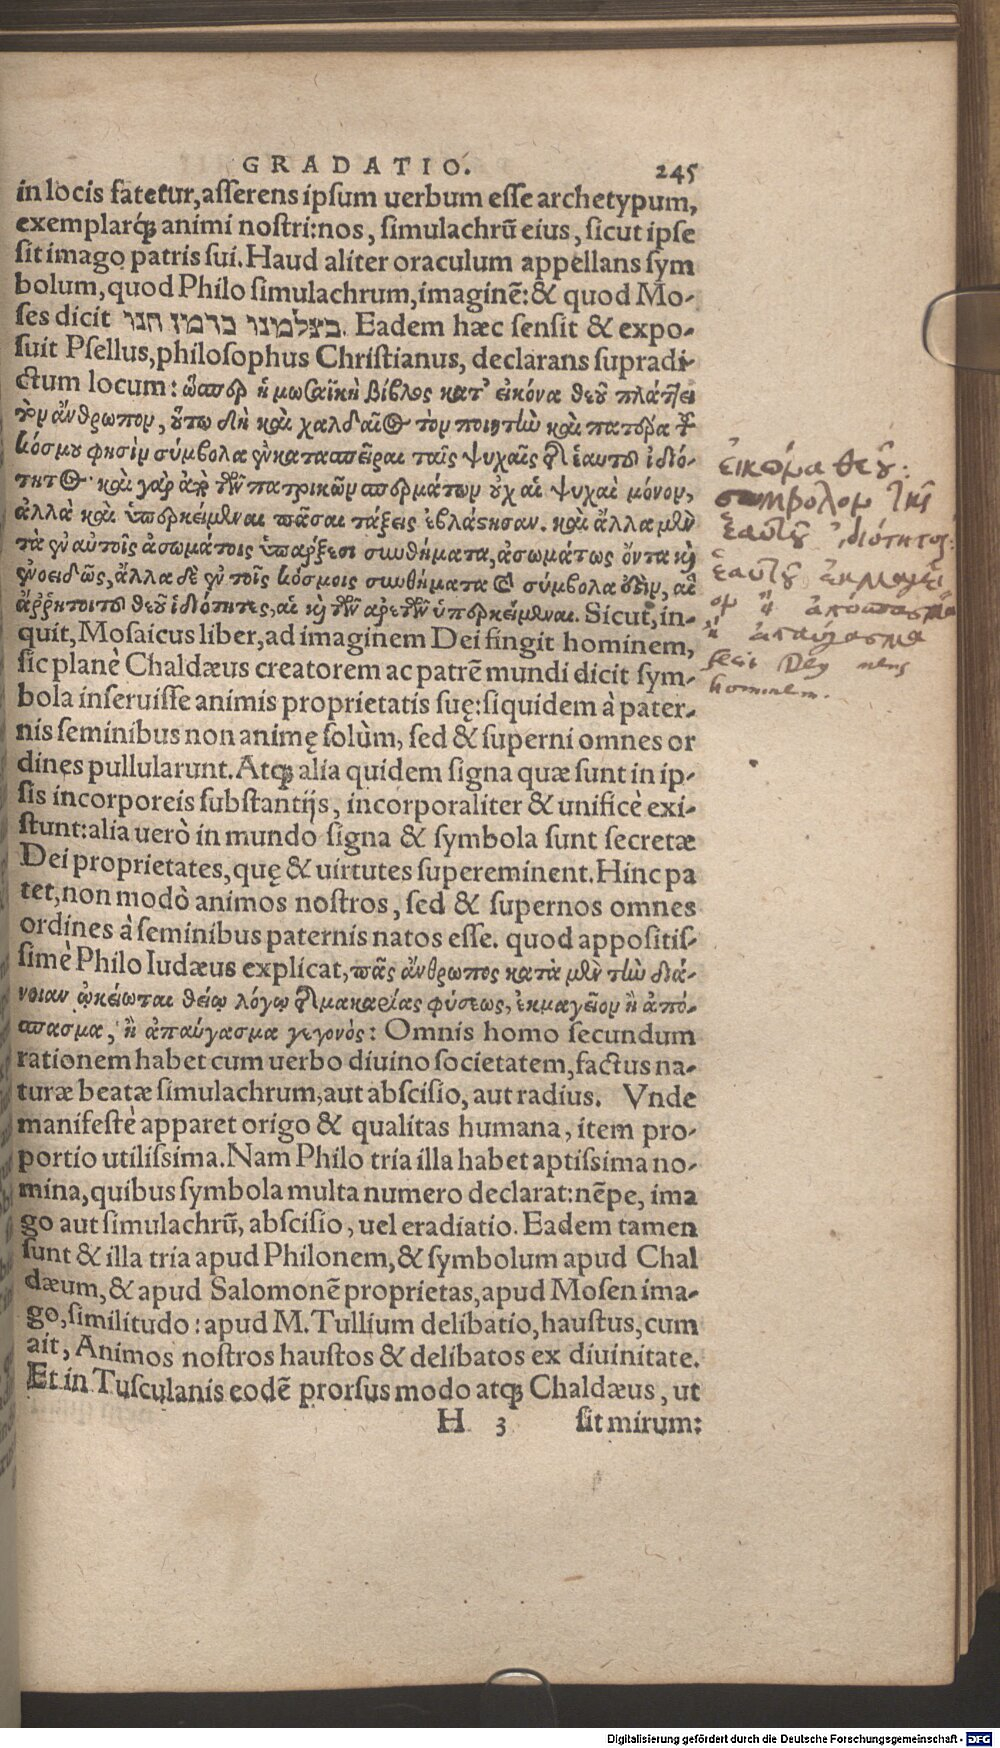 GRADATIO. 245
in locis fatetur, asserens ipsum uerbum esse archetypum,
exemplarq́; animi nostri: nos, simulachrũ eius, sicut ipse
sit imago patris sui. Haud aliter oraculum appellans sym
bolum, quod Philo simulachrum, imaginẽ: & quod Mo-
ses dicit בצלמינו ברמין חנו. Eadem hæc sensit & expo-
suit Psellus, philosophus Christianus, declarans supradi-
ctum locum: ὥσπερ ἡ μωσαϊκὴ βίβλος κατ' εἰκόνα θεοῦ πλάττει
τὸν ἄνθρωπον, οὕτω δὴ καὶ χαλδαῖος τὸν ποιητὴν καὶ πατέρα τοῦ
κόσμου φησὶν σύμβολα ἐγκατασπεῖραι ταῖς ψυχαῖς τῆς ἑαυτοῦ ἰδιό-
τητος. καὶ γὰρ ἀπὸ τῶν πατρικῶν σπερμάτων οὐχ αἱ ψυχαὶ μόνον,
ἀλλὰ καὶ ὑπερκείμεναι πᾶσαι τάξεις ἐβλάστησαν. καὶ ἄλλα μὲν
τὰ ἐν αὐτοῖς ἀσωμάτοις ὑπάρξεσι συνθήματα, ἀσωμάτως ὄντα καὶ
ἑνοειδῶς, ἄλλα δὲ ἐν τοῖς κόσμοις συνθήματα καὶ σύμβολα ἐστὶν, αἱ
ἄῤῥητοι τοῦ θεοῦ ἰδιότητες, αἱ καὶ τῶν ἀρετῶν ὑπερκείμεναι. Sicut, in-
quit, Mosaicus liber, ad imaginem Dei fingit hominem,
sic planè Chaldæus creatorem ac patrẽ mundi dicit sym-
bola inseruisse animis proprietatis suę: siquidem à pater-
nis seminibus non animę solùm, sed & superni omnes or
dines pullularunt. Atq; alia quidem signa quæ sunt in ip-
sis incorporeis substantijs, incorporaliter & unificè exi-
stunt: alia uerò in mundo signa & symbola sunt secretæ
Dei proprietates, quę & uirtutes supereminent. Hinc pa
tet, non modò animos nostros, sed & supernos omnes
ordines à seminibus paternis natos esse. quod appositis-
simè Philo Iudæus explicat, πᾶς ἄνθρωπος κατὰ μὲν τὴν διά-
νοιαν ᾠκείωται θείῳ λόγῳ τῆς μακαρίας φύσεως, ἐκμαγεῖον ἢ ἀπό-
σπασμα, ἢ ἀπαύγασμα γεγονὸς: Omnis homo secundum
rationem habet cum uerbo diuino societatem, factus na-
turæ beatæ simulachrum, aut abscisio, aut radius. Vnde
manifestè apparet origo & qualitas humana, item pro-
portio utilissima. Nam Philo tria illa habet aptissima no-
mina, quibus symbola multa numero declarat: nẽpe, ima
go aut simulachrũ, abscisio, uel eradiatio. Eadem tamen
sunt & illa tria apud Philonem, & symbolum apud Chal
dæum, & apud Salomonẽ proprietas, apud Mosen ima-
go, similitudo: apud M. Tullium delibatio, haustus, cum
ait, Animos nostros haustos & delibatos ex diuinitate.
Et in Tusculanis eodẽ prorsus modo atq; Chaldæus, ut
H 3 sit mirum:
εἰκόνα θεοῦ:
σύμβολον τῆς
ἑαυτοῦ ἰδιότητος:
ἑαυτοῦ ἐκμαγεῖ
ον ἢ ἀπόσπασμα
ἢ ἀπαύγασμα
hominem.
Digitalisierung gefördert durch die Deutsche Forschungsgemeinschaft - DFG